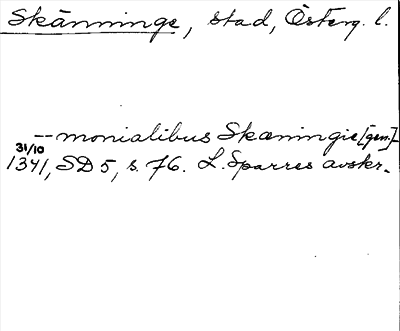 Skänninge, stad, Österg. l.
-- monialibus Skæningie [gen.] -
31/10
1341, SD 5, s. 76. L. Sparres avskr.